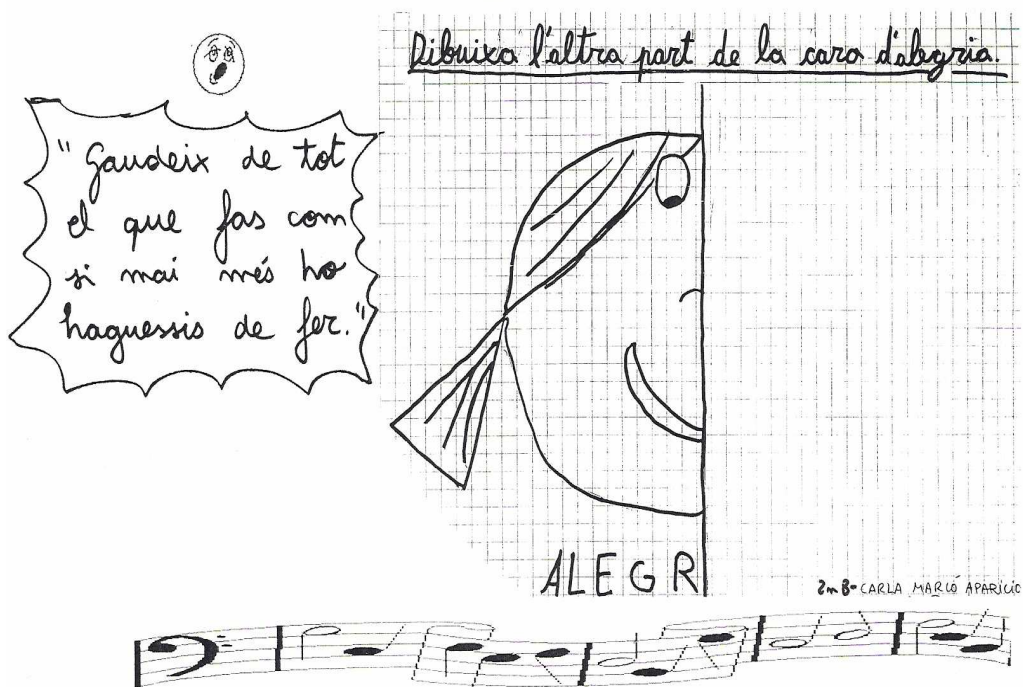 Dibuixa l'altra part de la cara d'alegria.
"Gaudeix de tot
el que fas com
si mai més ho
haguessis de fer."
ALEGR
2n B- CARLA MARCÓ APARICIO